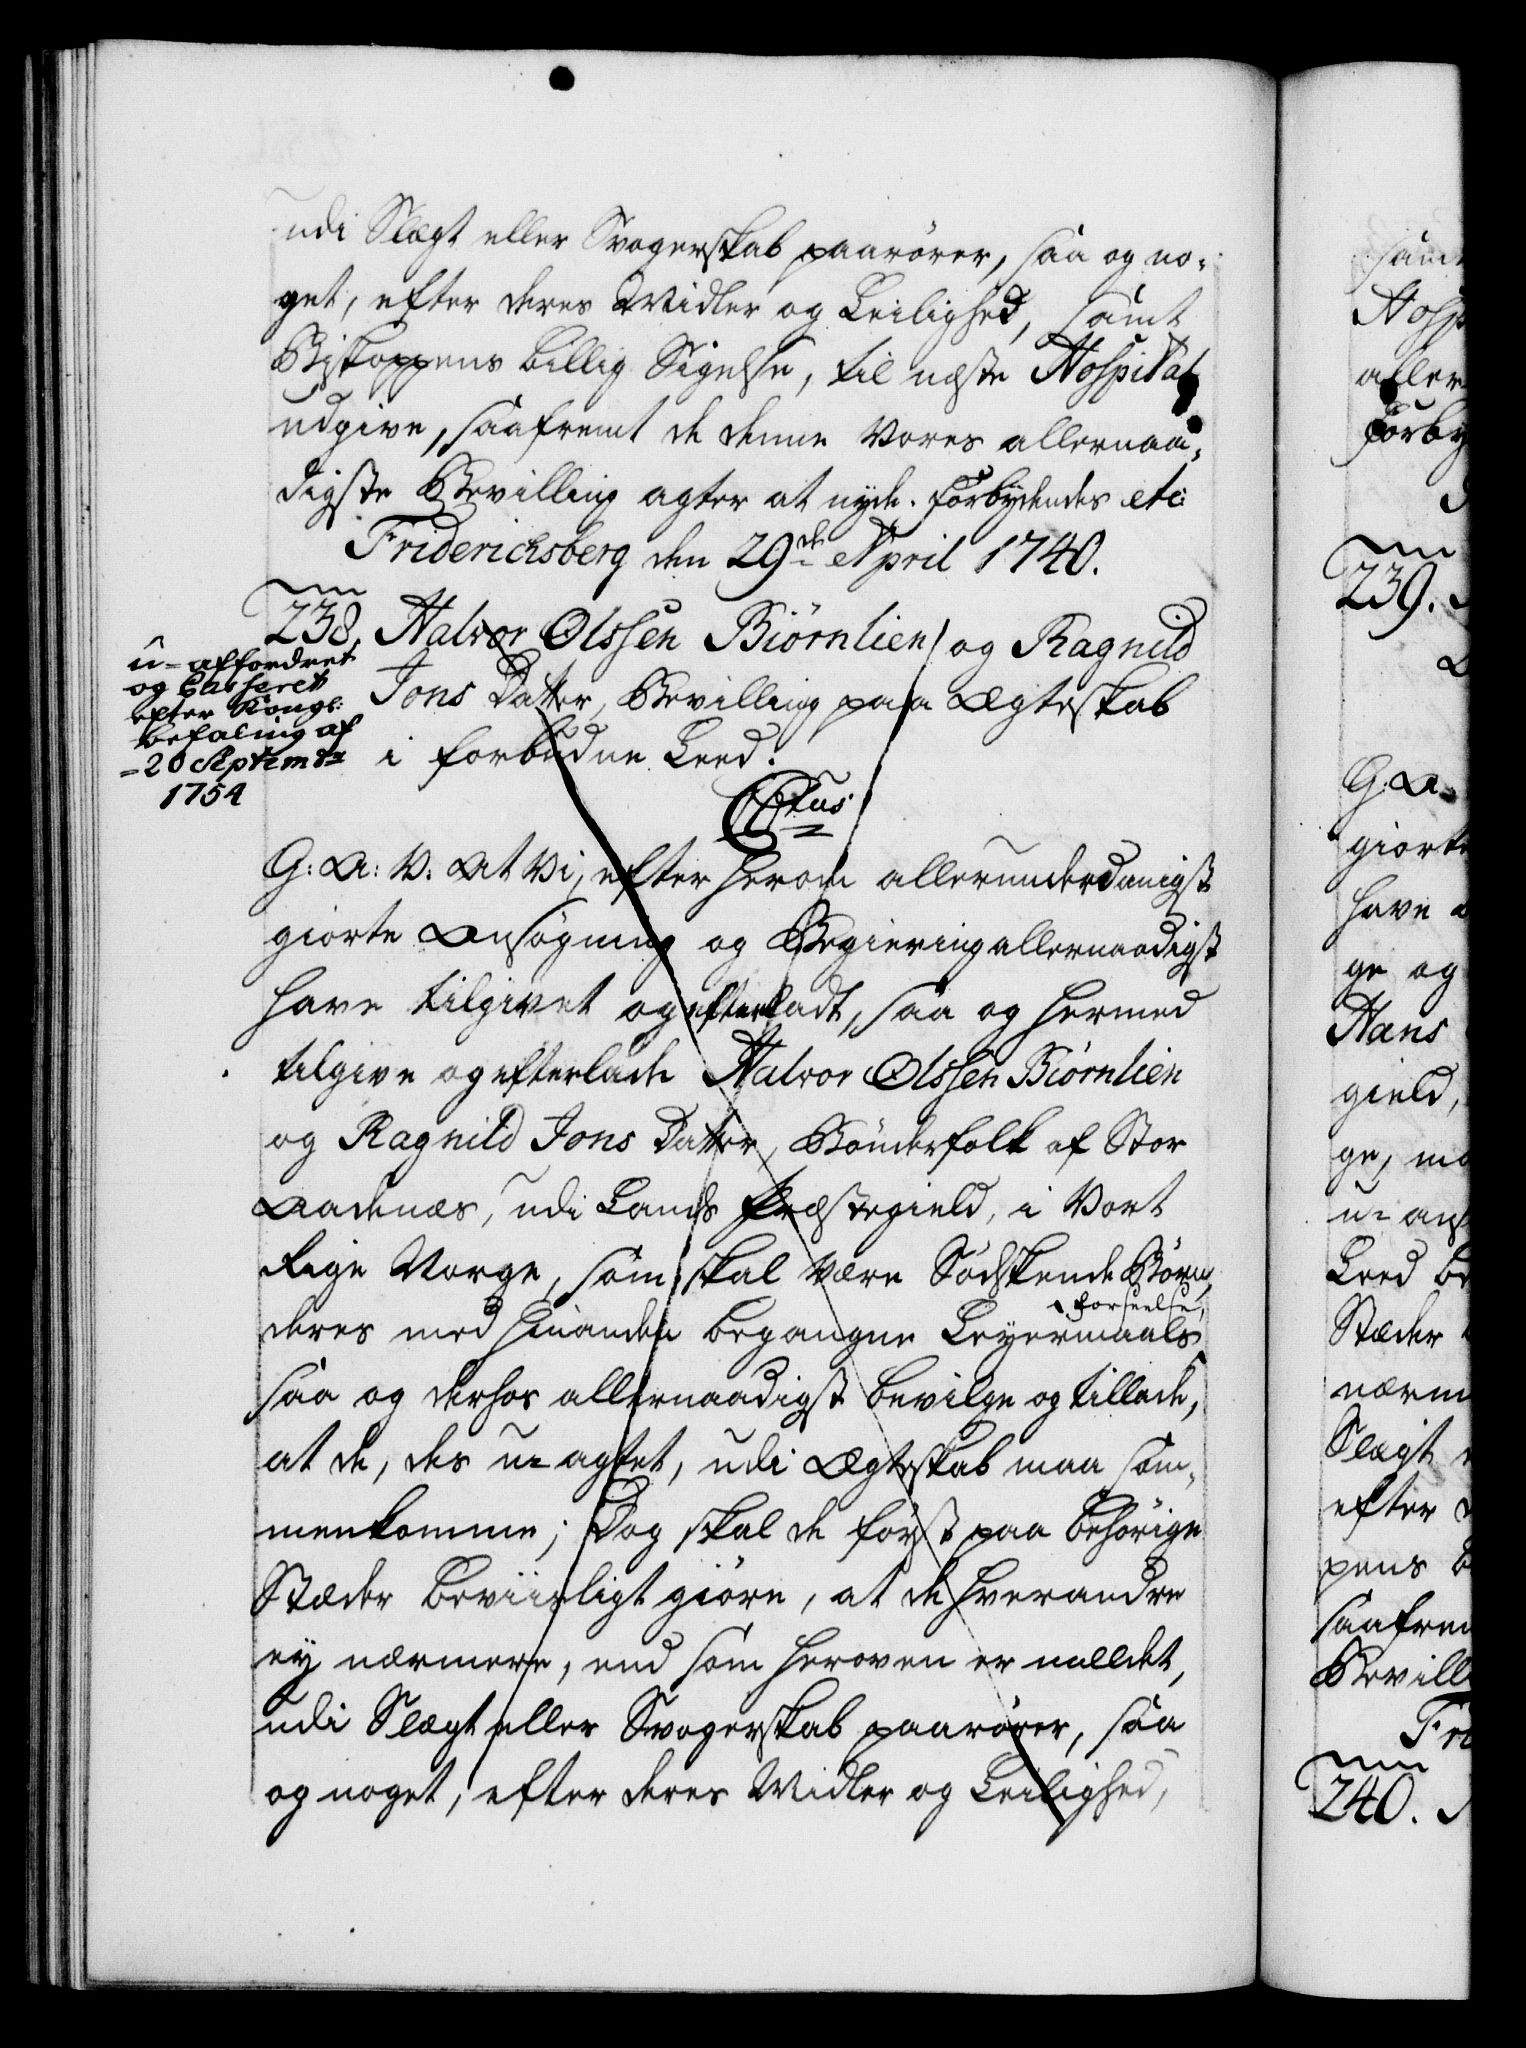 udi Slægt eller Svogerskab paarører, saa og no-
get, efter deres Midler og Leilighed, samt
Biskoppens billig Sigelse, til næste Hospital
udgive, saafremt de denne Vores allernaa-
digste Bevilling agter at nyde. Forbydendes etc:
Friderichsberg den 29de April 1740.
238. Halvor Olssen Biørnlien og Ragnild
Jons Datter, Bevilling paa Ægteskab
i forbudne Leed.
u-affordret
og Casseret
efter Kongl:
befaling af
20 Septembr
1754
G: A: V: At Vi, efter herom allerunderdanigst
giorte Ansøgning og Begiering allernaadigst
have tilgivet og efterladt, saa og hermed
tilgive og efterlade Halvor Olssen Biørnlien
og Ragnild Jons Datter, Bønderfolk af Stor
Aadnæs, udi Lands Præstegield, i Vort
Rige Norge, som skal være Sødskende Børn,
deres med hinanden begangne Leyermaals
forseelse,
saa og derhos allernaadigst bevilge og tillade,
at de, des u-agtet, udi Ægteskab maa sam-
menkomme; Dog skal de først paa behørige
Stæder beviisligt giøre, at de hverandre
ey nærmere, end som heroven er meldet,
udi Slægt eller Svogerskab paarører, saa
og noget, efter deres Midler og Leilighed,
samt
Hosp
aller
Forby
239.
G: A
giorte
have a
ge og
Hans
gield,
ge, ma
u-an
Leed be
Stæder
nærm
Slægt
efter d
pens B
saafrem
Bevill
Fri
240.